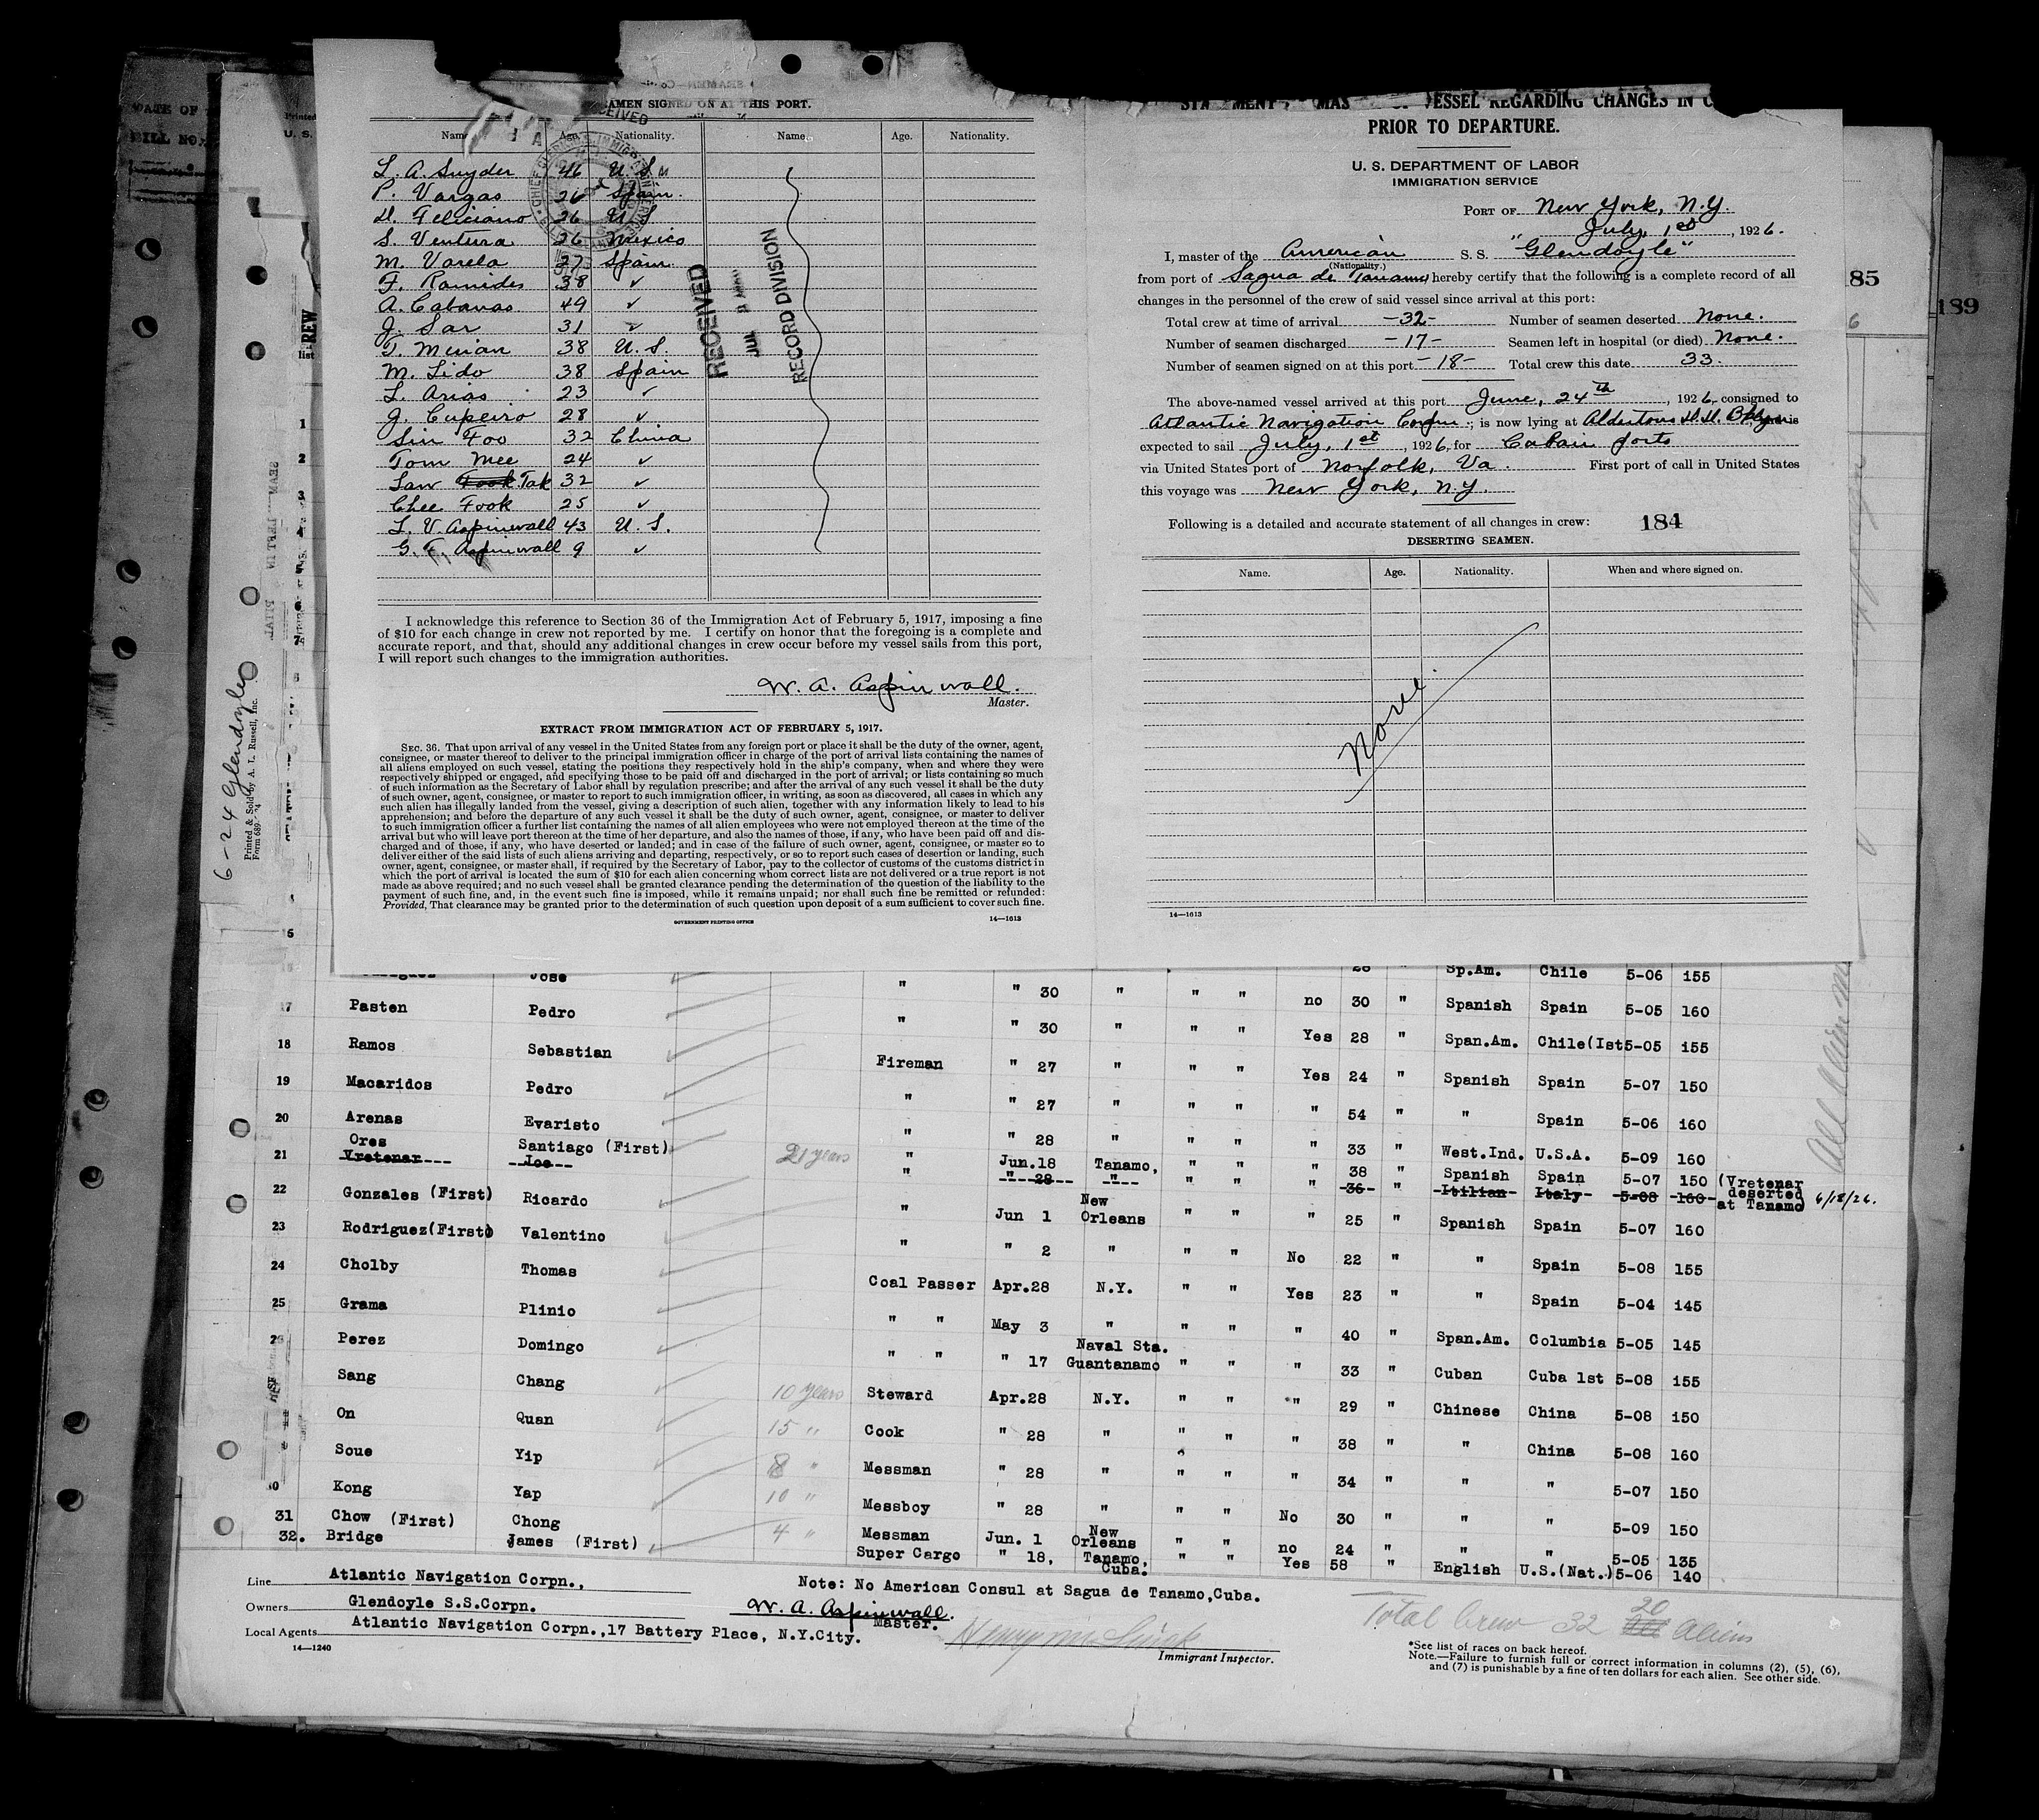 SEAMEN SIGNED ON AT THIS PORT.
Name. Age. Nationality. Name. Age. Nationality.
L. A. Snyder 46 U. S.
P. Vargas 26 Spain.
D. Feliciano 26 U S
S. Ventura 36 Mexico
M. Varela 27 Spain.
F. Ramides 38 ✓
A. Cabanas 49 ✓
J. Sar 31 ✓
T. Merian 38 U. S.
M. Lido 38 Spain
L. Arias 23 ✓
J. Cupeiro 28 ✓
Sin Foo 32 China
Tom Mee 24 ✓
Law Fook Tak 32 ✓
Chee Fook 25 ✓
L. V. Aspinwall 43 U. S.
G. F. Aspinwall 9 ✓
RECEIVED
RECORD DIVISION
I acknowledge this reference to Section 36 of the Immigration Act of February 5, 1917, imposing a fine
of $10 for each change in crew not reported by me. I certify on honor that the foregoing is a complete and
accurate report, and that, should any additional changes in crew occur before my vessel sails from this port,
I will report such changes to the immigration authorities.
W. A. Aspinwall.
Master.
EXTRACT FROM IMMIGRATION ACT OF FEBRUARY 5, 1917.
SEC. 36. That upon arrival of any vessel in the United States from any foreign port or place it shall be the duty of the owner, agent,
consignee, or master thereof to deliver to the principal immigration officer in charge of the port of arrival lists containing the names of
all aliens employed on such vessel, stating the positions they respectively hold in the ship's company, when and where they were
respectively shipped or engaged, and specifying those to be paid off and discharged in the port of arrival; or lists containing so much
of such information as the Secretary of Labor shall by regulation prescribe; and after the arrival of any such vessel it shall be the duty
of such owner, agent, consignee, or master to report to such immigration officer, in writing, as soon as discovered, all cases in which any
such alien has illegally landed from the vessel, giving a description of such alien, together with any information likely to lead to his
apprehension; and before the departure of any such vessel it shall be the duty of such owner, agent, consignee, or master to deliver
to such immigration officer a further list containing the names of all alien employees who were not employed thereon at the time of the
arrival but who will leave port thereon at the time of her departure, and also the names of those, if any, who have been paid off and dis-
charged and of those, if any, who have deserted or landed; and in case of the failure of such owner, agent, consignee, or master so to
deliver either of the said lists of such aliens arriving and departing, respectively, or so to report such cases of desertion or landing, such
owner, agent, consignee, or master shall, if required by the Secretary of Labor, pay to the collector of customs of the customs district in
which the port of arrival is located the sum of $10 for each alien concerning whom correct lists are not delivered or a true report is not
made as above required; and no such vessel shall be granted clearance pending the determination of the question of the liability to the
payment of such fine, and, in the event such fine is imposed, while it remains unpaid; nor shall such fine be remitted or refunded:
Provided, That clearance may be granted prior to the determination of such question upon deposit of a sum sufficient to cover such fine.
GOVERNMENT PRINTING OFFICE 14—1613
VESSEL REGARDING CHANGES IN
PRIOR TO DEPARTURE.
U. S. DEPARTMENT OF LABOR
IMMIGRATION SERVICE
PORT OF New York, N.Y.
July, 1st, 1926.
I, master of the American S. S. "Glendoyle"
(Nationality.)
from port of Sagua de Tanamo, hereby certify that the following is a complete record of all
changes in the personnel of the crew of said vessel since arrival at this port:
Total crew at time of arrival -32- Number of seamen deserted None.
Number of seamen discharged -17- Seamen left in hospital (or died) None.
Number of seamen signed on at this port -18- Total crew this date 33.
The above-named vessel arrived at this port June, 24th, 1926, consigned to
Atlantic Navigation Corpn.; is now lying at
expected to sail July, 1st, 1926, for ports
via United States port of Norfolk, Va. First port of call in United States
this voyage was New York, N.Y.
Following is a detailed and accurate statement of all changes in crew: 184
DESERTING SEAMEN.
Name. Age. Nationality. When and where signed on.
None.
14—1613
85
189
6-24 Glendoyle
Printed & Sold by A. L. Russell, Inc.
Jose 28 " Sp.Am. Chile 5-06 155
17 Pasten Pedro " " 30 " " " no 30 " Spanish Spain 5-05 160
18 Ramos Sebastian " " 30 " " " Yes 28 " Span.Am. Chile(Ist 5-05 155
19 Macaridos Pedro Fireman " 27 " " " Yes 24 " Spanish Spain 5-07 150
20 Arenas Evaristo " " 27 " " " " 54 " " Spain 5-06 160
Ores Santiago (First) " " 28 " " " " 33 " West.Ind. U.S.A. 5-09 160
21 Vretenar Joe 21 years " Jun.18 Tanamo, " " " 38 " Spanish Spain 5-07 150 (Vretenar
" " 28 " " " " 36 " Itilian Italy 5-08 160 deserted 6/18/26.
at Tanamo
22 Gonzales (First) Ricardo " Jun 1 New Orleans " " " 25 " Spanish Spain 5-07 160
23 Rodriguez(First) Valentino " " 2 " " " No 22 " " Spain 5-08 155
24 Cholby Thomas Coal Passer Apr.28 N.Y. " " Yes 23 " " Spain 5-04 145
25 Grama Plinio " " May 3 " " " " 40 " Span.Am. Columbia 5-05 145
26 Perez Domingo " " " 17 Naval Sta. Guantanamo " " " 33 " Cuban Cuba 1st 5-08 155
Sang Chang 10 years Steward Apr.28 N.Y. " " " 29 " Chinese China 5-08 150
On Quan 15 " Cook " 28 " " " " 38 " " China 5-08 160
Soue Yip 8 " Messman " 28 " " " " 34 " " " 5-07 150
Kong Yap 10 " Messboy " 28 " " " No 30 " " " 5-09 150
31 Chow (First) Chong 4 " Messman Jun. 1 New Orleans " " no 24 " " " 5-05 135
32. Bridge James (First) Super Cargo " 18, Tanamo, Cuba. " " Yes 58 " English U.S.(Nat.) 5-06 140
Line Atlantic Navigation Corpn., Note: No American Consul at Sagua de Tanamo,Cuba.
Owners Glendoyle S.S.Corpn. W. A. Aspinwall. Master.
Local Agents Atlantic Navigation Corpn.,17 Battery Place, N.Y.City.
14—1240 Immigrant Inspector.
Total Crew 32 20 Aliens
*See list of races on back hereof.
Note.—Failure to furnish full or correct information in columns (2), (5), (6),
and (7) is punishable by a fine of ten dollars for each alien. See other side.